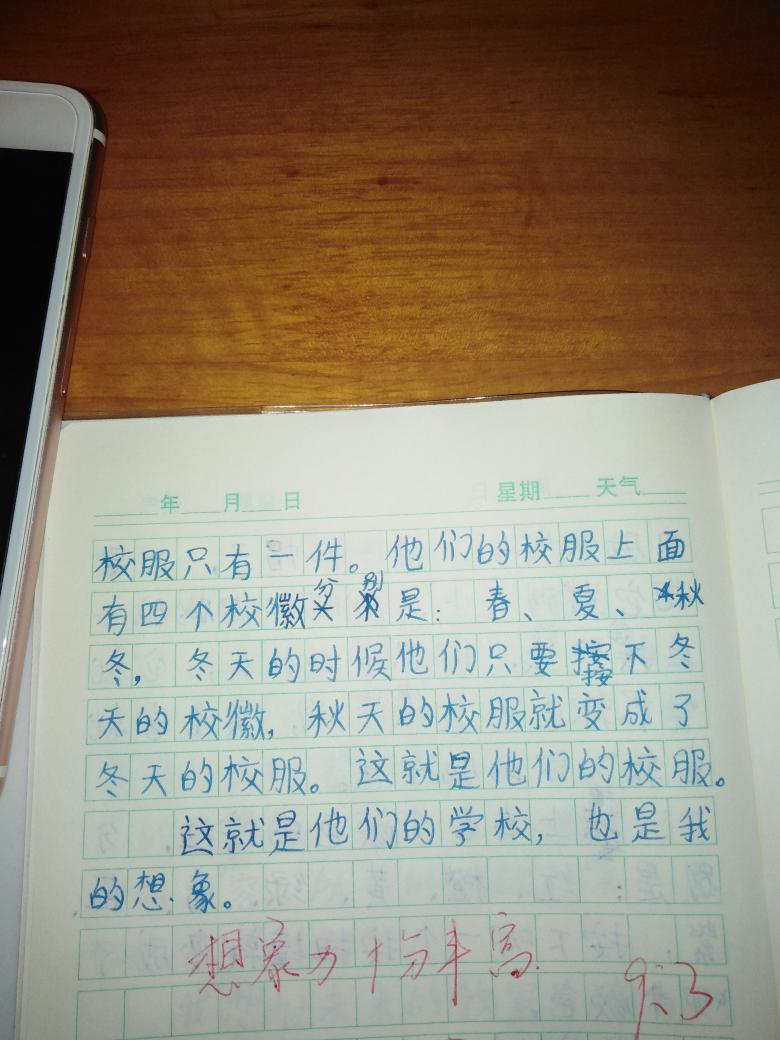 年 月 日 星期 天气
校服只有一件。他们的校服上面
有四个校徽分别是：春、夏、秋
冬，冬天的时候他们只要按下冬
天的校徽，秋天的校服就变成了
冬天的校服。这就是他们的校服。
这就是他们的学校，也是我
的想象。
想象力十分丰富
9.3